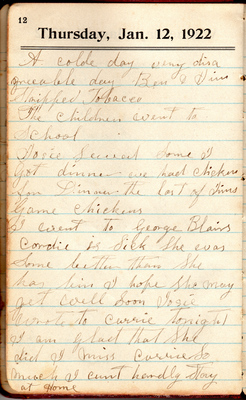 12
Thursday, Jan. 12, 1922
A colde day very disa
greeable day Ben & Vins
stripped Tobacco
The children went to
School
Josie Sewed Some I
got dinner we had chicken
for Dinner the last of
Game chickens
I went to George Blairs
Cordie is Sick She was
Some better than She
has bin I hope She may
get well Soon Josie
wrote to Carrie tonight
I am glad that She
did I miss Carrie So
much I cant hardly Stay
at home